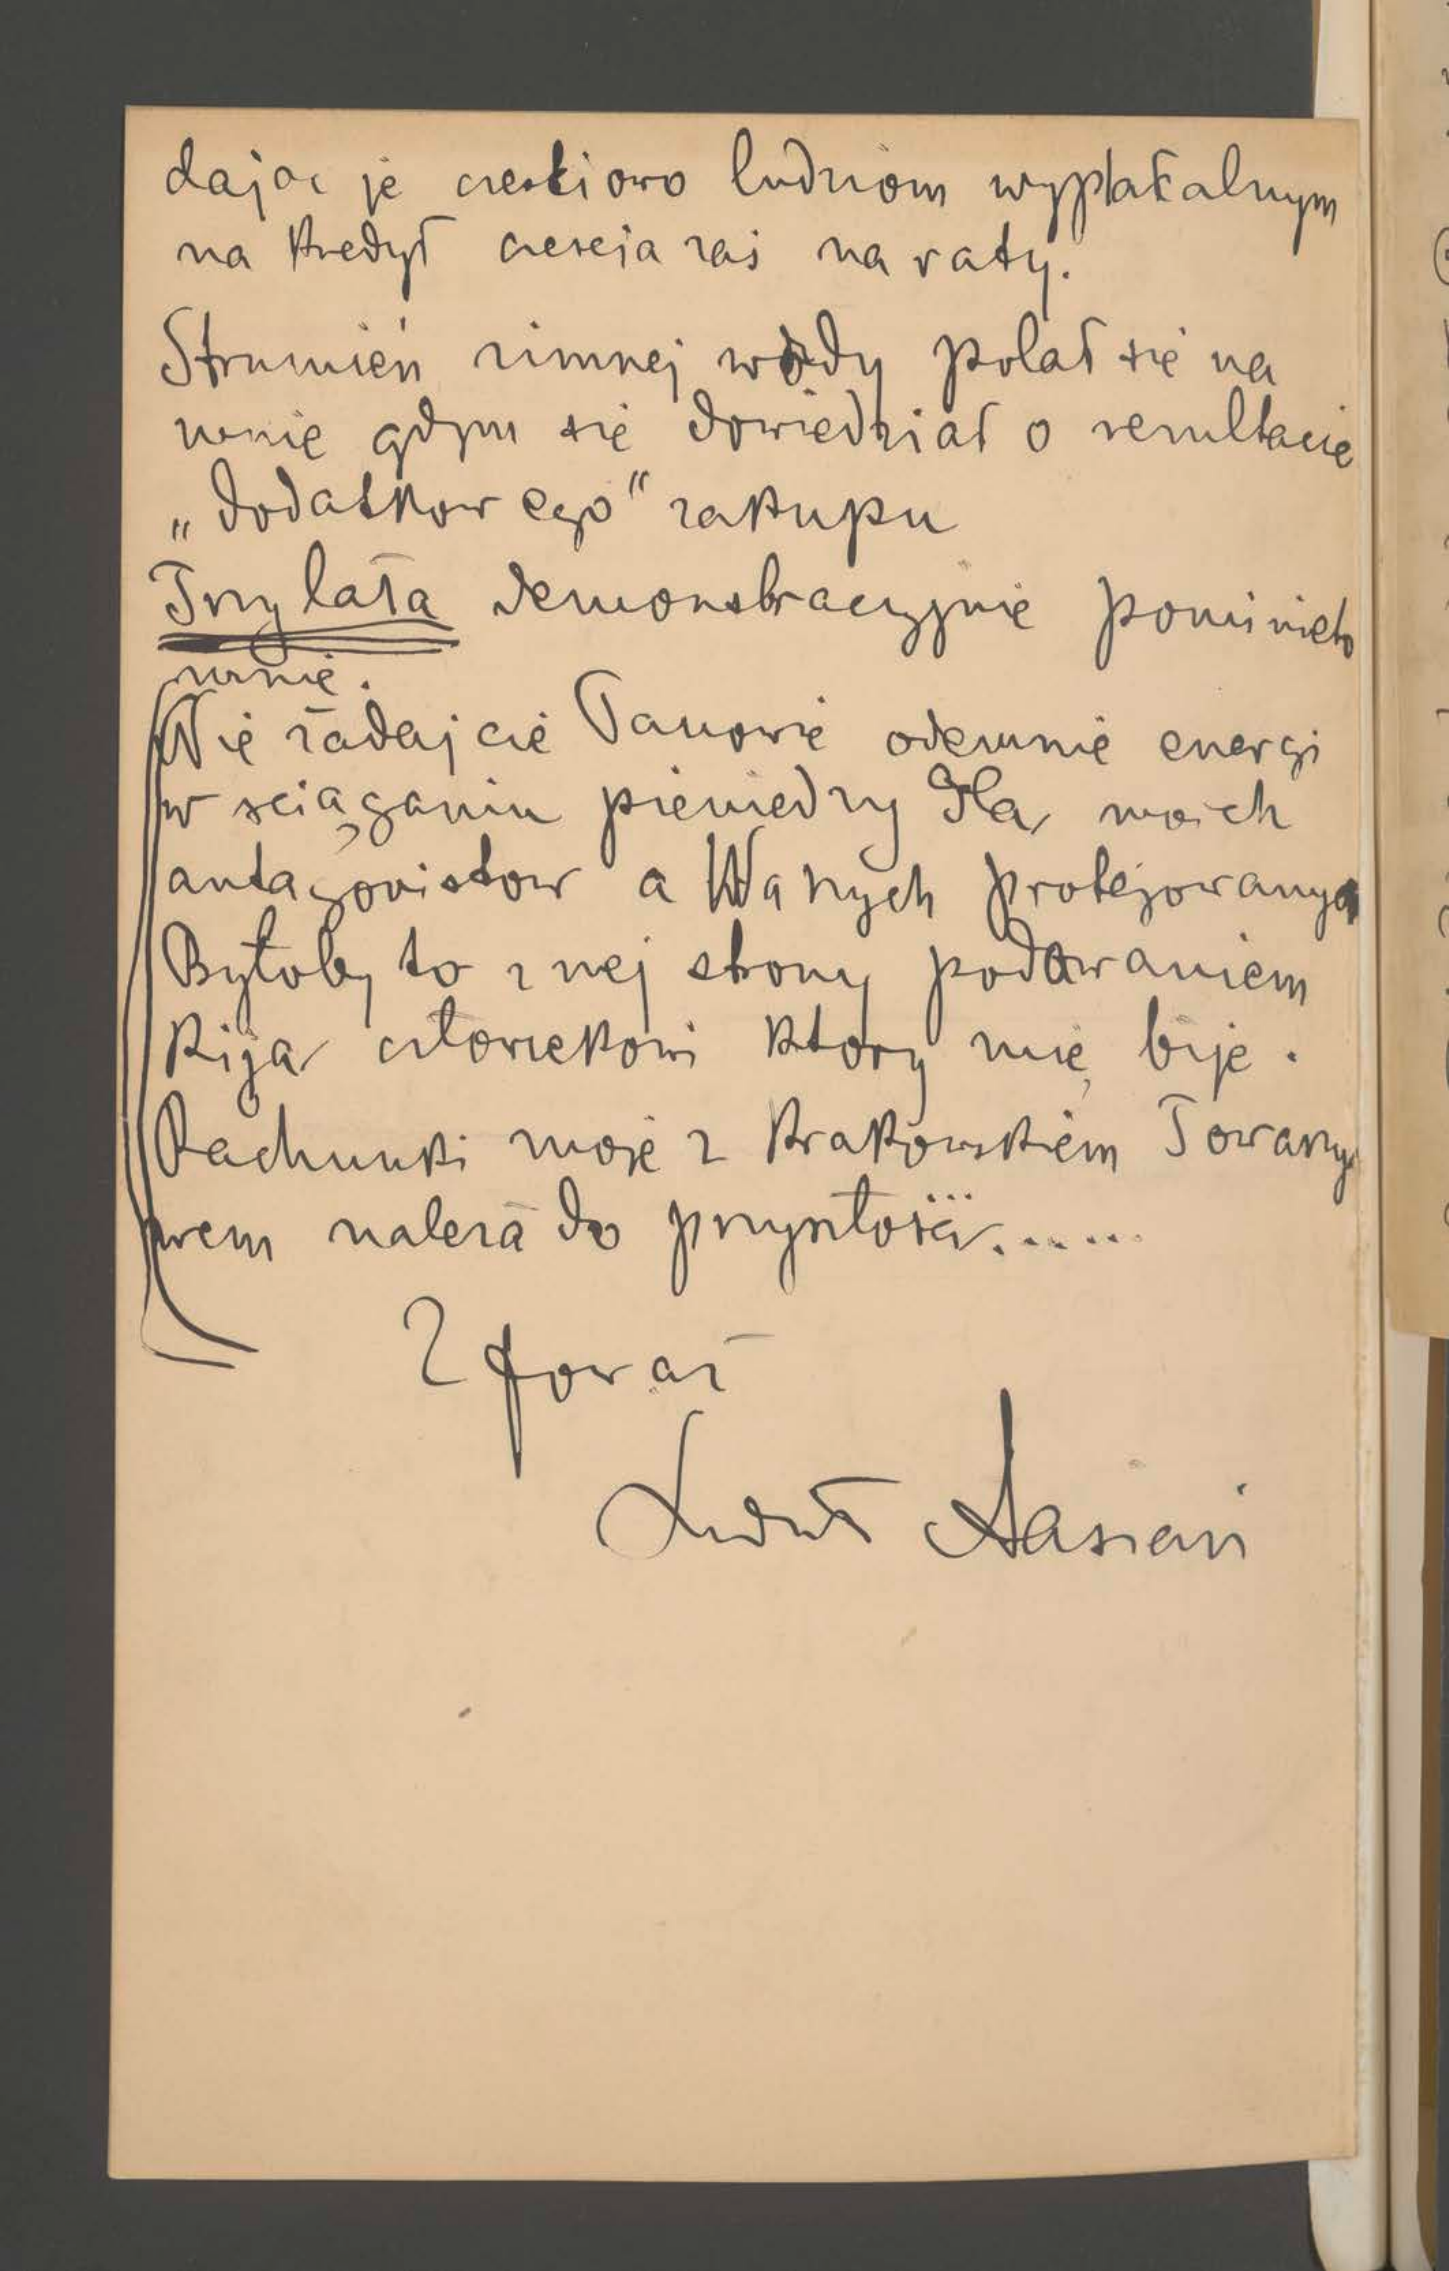 dając je cześciowo ludziom wypłatalnym
na kredyt cześcia zaś na raty.
Strumień zimnej wody polał się na
mnie gdym się dowiedział o rezultacie
„dodatkowego" zakupu
Trzy lata demonstracyjnie pominieto
mnie.
Nie żadajcie Panowie odemnie energi
w sciąganiu pieniedzy dla moich
antagonistow a Waszych protegowanych
Byłoby to z mej strony podawaniem
kija człowiekowi ktory mię bije.
Rachunki moje z krakowskiem Towarzy
wem należą do przyszłości......
Z poważ